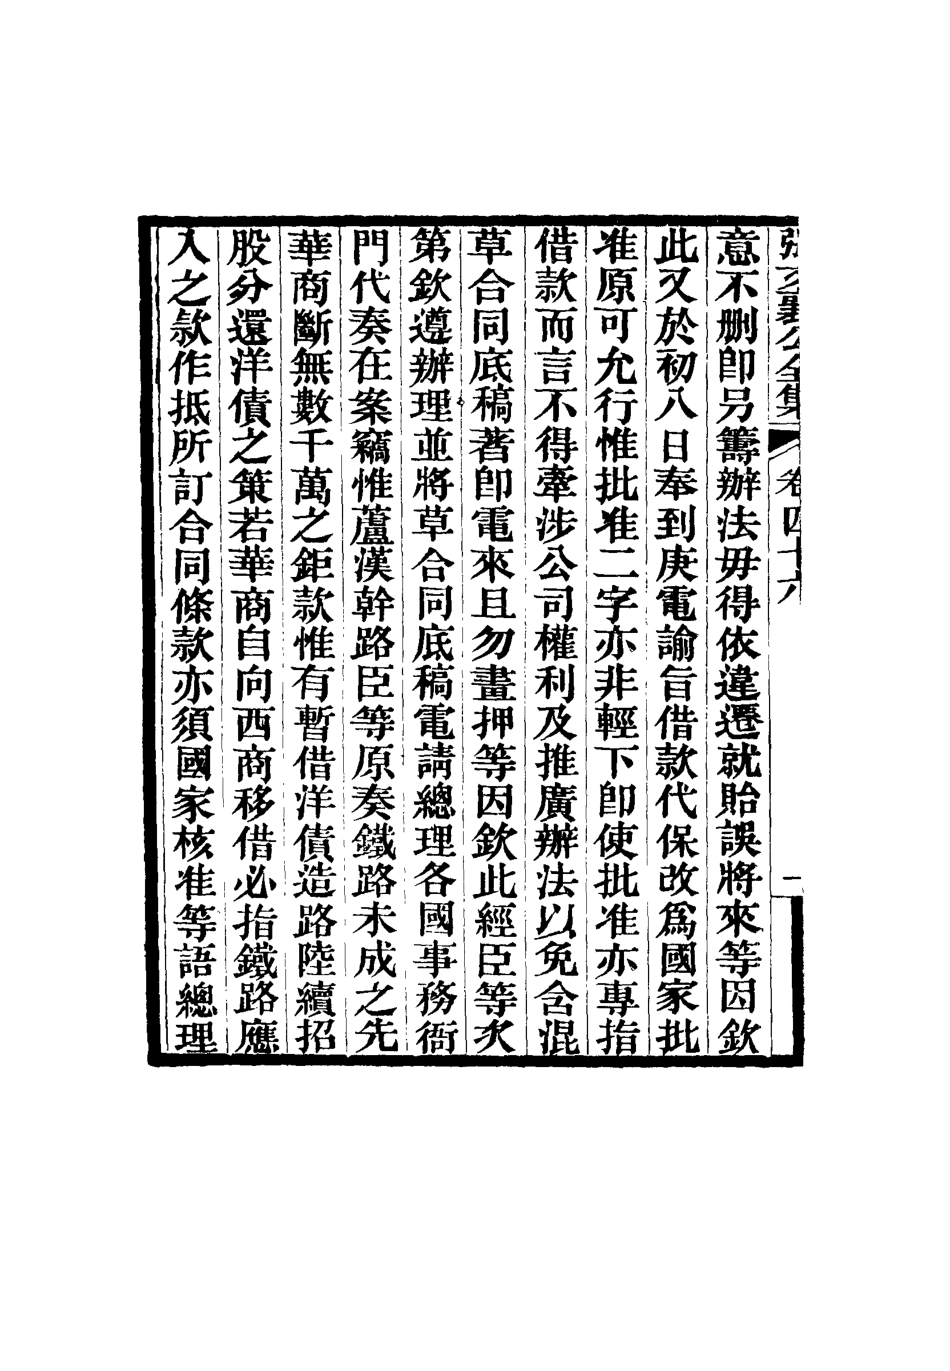 張文襄公全集 卷四十六 一
意不刪卽另籌辦法毋得依違遷就貽誤將來等因欽
此又於初八日奉到庚電諭旨借款代保改爲國家批
准原可允行惟批准二字亦非輕下卽使批准亦專指
借款而言不得牽涉公司權利及推廣辦法以免含混
草合同底稿著卽電來且勿畫押等因欽此經臣等次
第欽遵辦理並將草合同底稿電請總理各國事務衙
門代奏在案竊惟蘆漢幹路臣等原奏鐵路未成之先
華商斷無數千萬之鉅款惟有暫借洋債造路陸續招
股分還洋債之策若華商自向西商移借必指鐵路應
入之款作抵所訂合同條款亦須國家核准等語總理